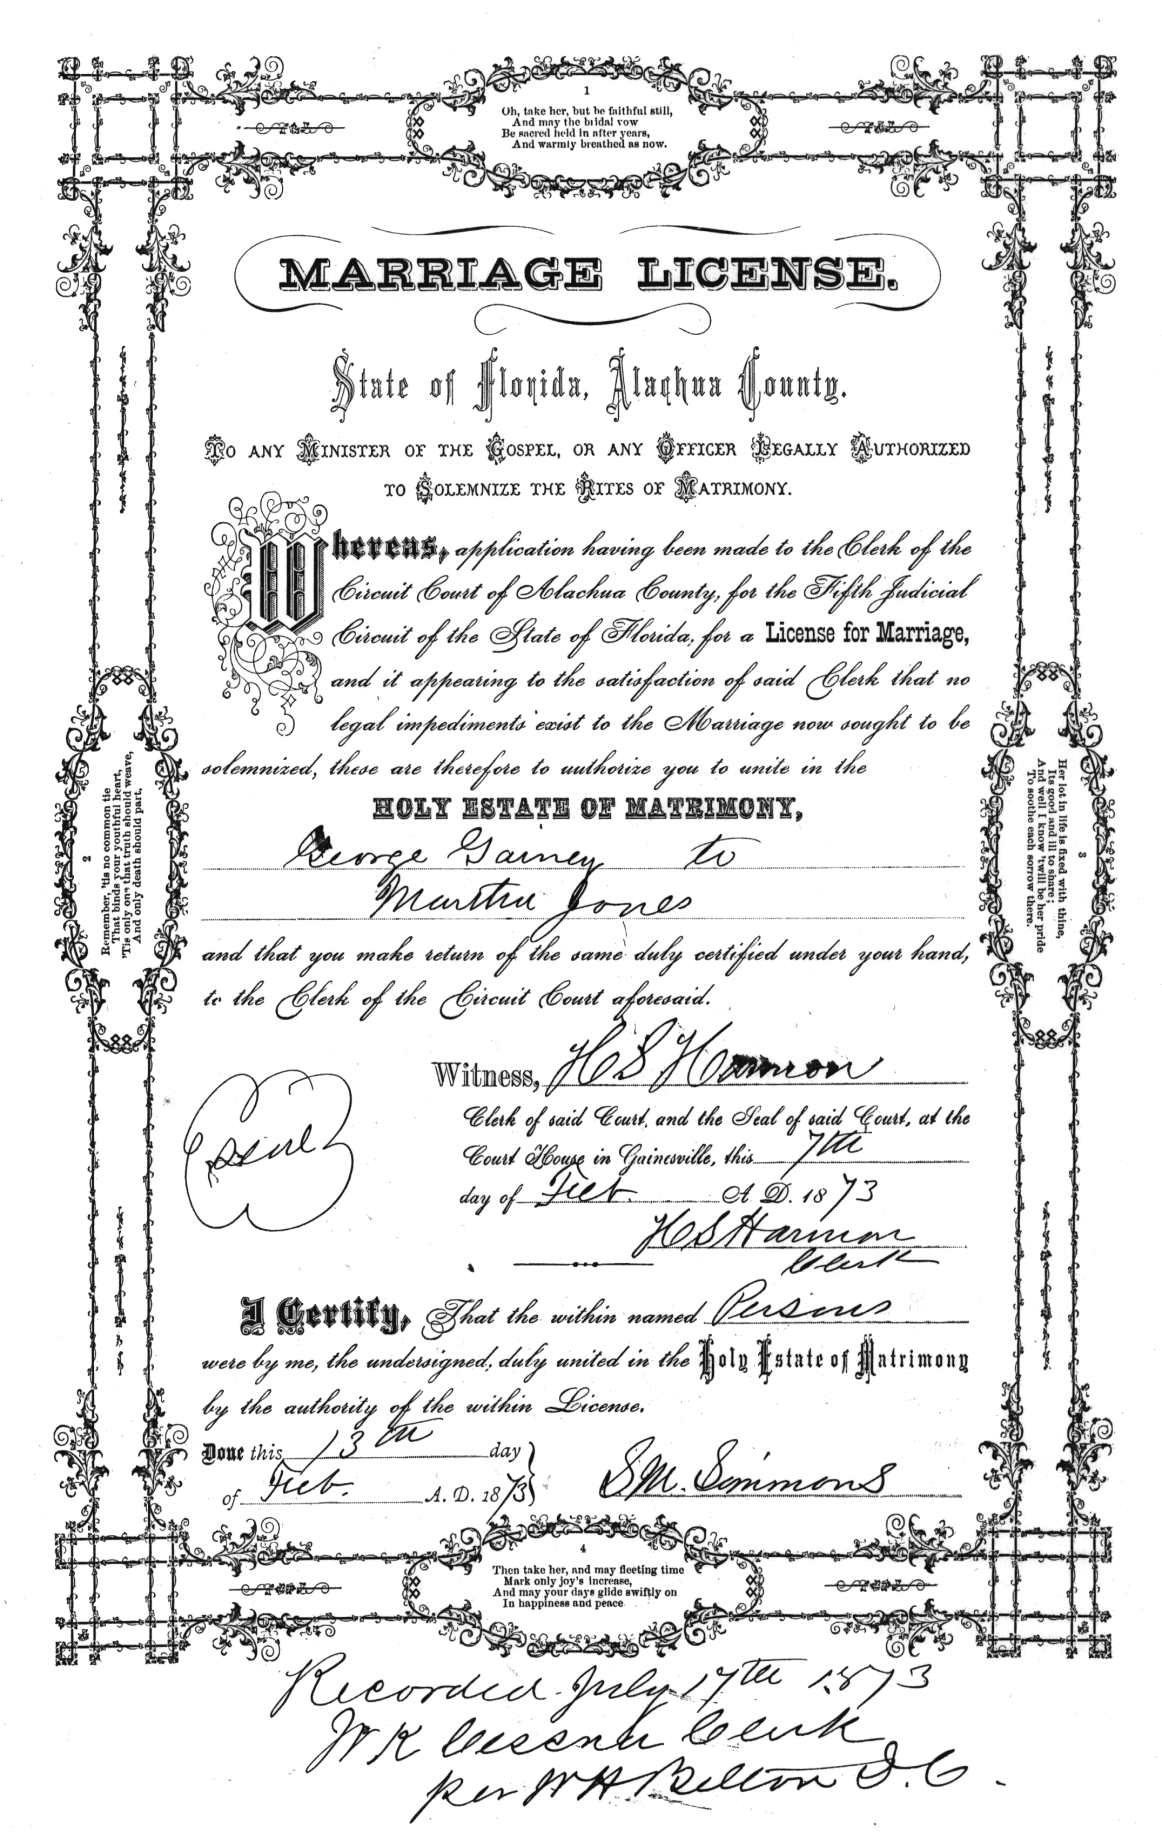 1
Oh, take her, but be faithful still,
And may the bridal vow
Be sacred held in after years,
And warmly breathed as now.
MARRIAGE LICENSE.
State of Florida, Alachua County.
TO ANY MINISTER OF THE GOSPEL, OR ANY OFFICER LEGALLY AUTHORIZED
TO SOLEMNIZE THE RITES OF MATRIMONY.
Whereas, application having been made to the Clerk of the
Circuit Court of Alachua County, for the Fifth Judicial
Circuit of the State of Florida, for a License for Marriage,
and it appearing to the satisfaction of said Clerk that no
legal impediments exist to the Marriage now sought to be
solemnized, these are therefore to authorize you to unite in the
HOLY ESTATE OF MATRIMONY,
George Gainey to
Martha Jones
and that you make return of the same duly certified under your hand,
to the Clerk of the Circuit Court aforesaid.
Witness, H S Harmon
Clerk of said Court, and the Seal of said Court, at the
Court House in Gainesville, this 7th
day of Feb A. D. 1873
H S Harmon
Clerk
I Certify, That the within named Persons
were by me, the undersigned, duly united in the Holy Estate of Matrimony
by the authority of the within License.
Done this 13th day
of Feb. A. D. 1873
S. M. Simmons
2
Remember, 'tis no common tie
That binds your youthful heart,
'Tis only one that truth should weave,
And only death should part.
3
Her lot in life is fixed with thine,
Its good and ill to share;
And well I know 'twill be her pride
To soothe each sorrow there.
4
Then take her, and may fleeting time
Mark only joy's increase,
And may your days glide swiftly on
In happiness and peace
Recorded July 17th 1873
W K Cessna Clerk
per W H Belton D. C.